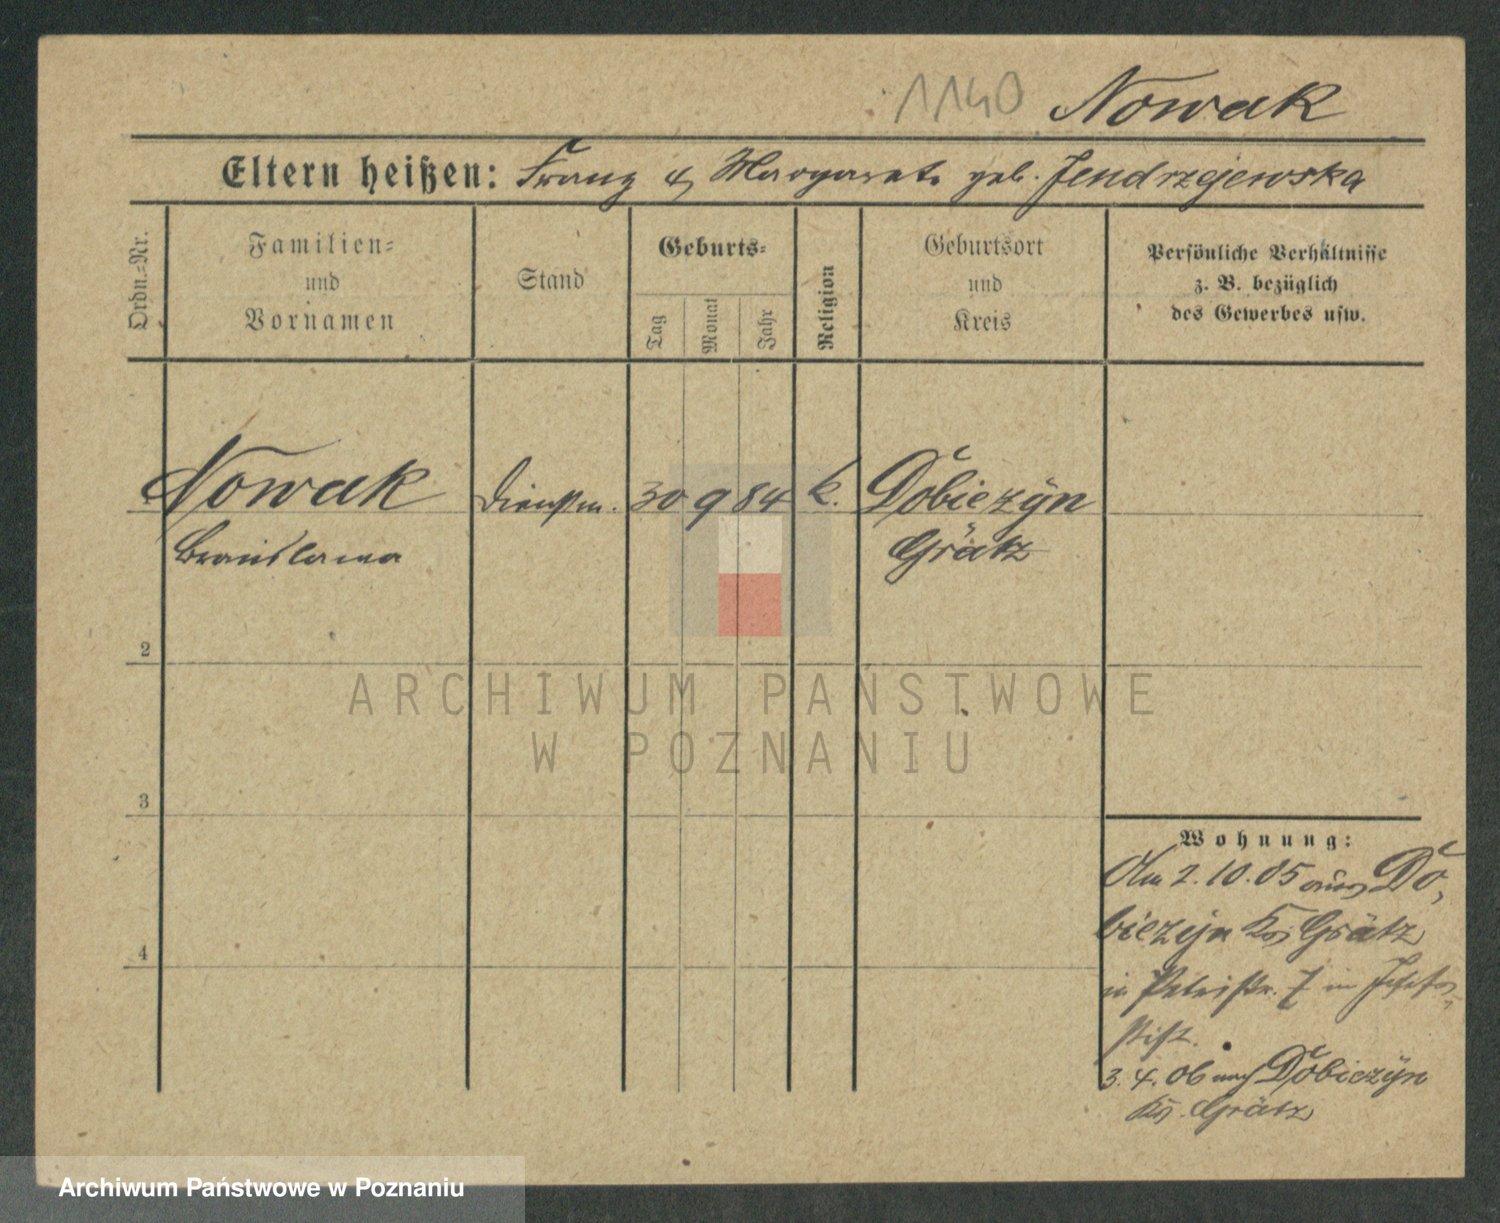 1140 Nowak
Eltern heißen: Franz & Margarete geb. Jendrzejewska
Ordn.-Nr.
Familien-
und
Vornamen
Stand
Geburts-
Tag
Monat
Jahr
Religion
Geburtsort
und
Kreis
Persönliche Verhältnisse
z. B. bezüglich
des Gewerbes usw.
1 Nowak Dienstm. 30 9 84 k. Dobiezyn
Bronislawa Grätz
2
3
4
ARCHIWUM PAŃSTWOWE
W POZNANIU
Wohnung:
Am 2.10.05 aus Do,
biezyn Krs Grätz
in Petristr. 7 im Josefs-
stift.
3.4.06 nach Dobiezyn
Krs. Grätz
Archiwum Państwowe w Poznaniu